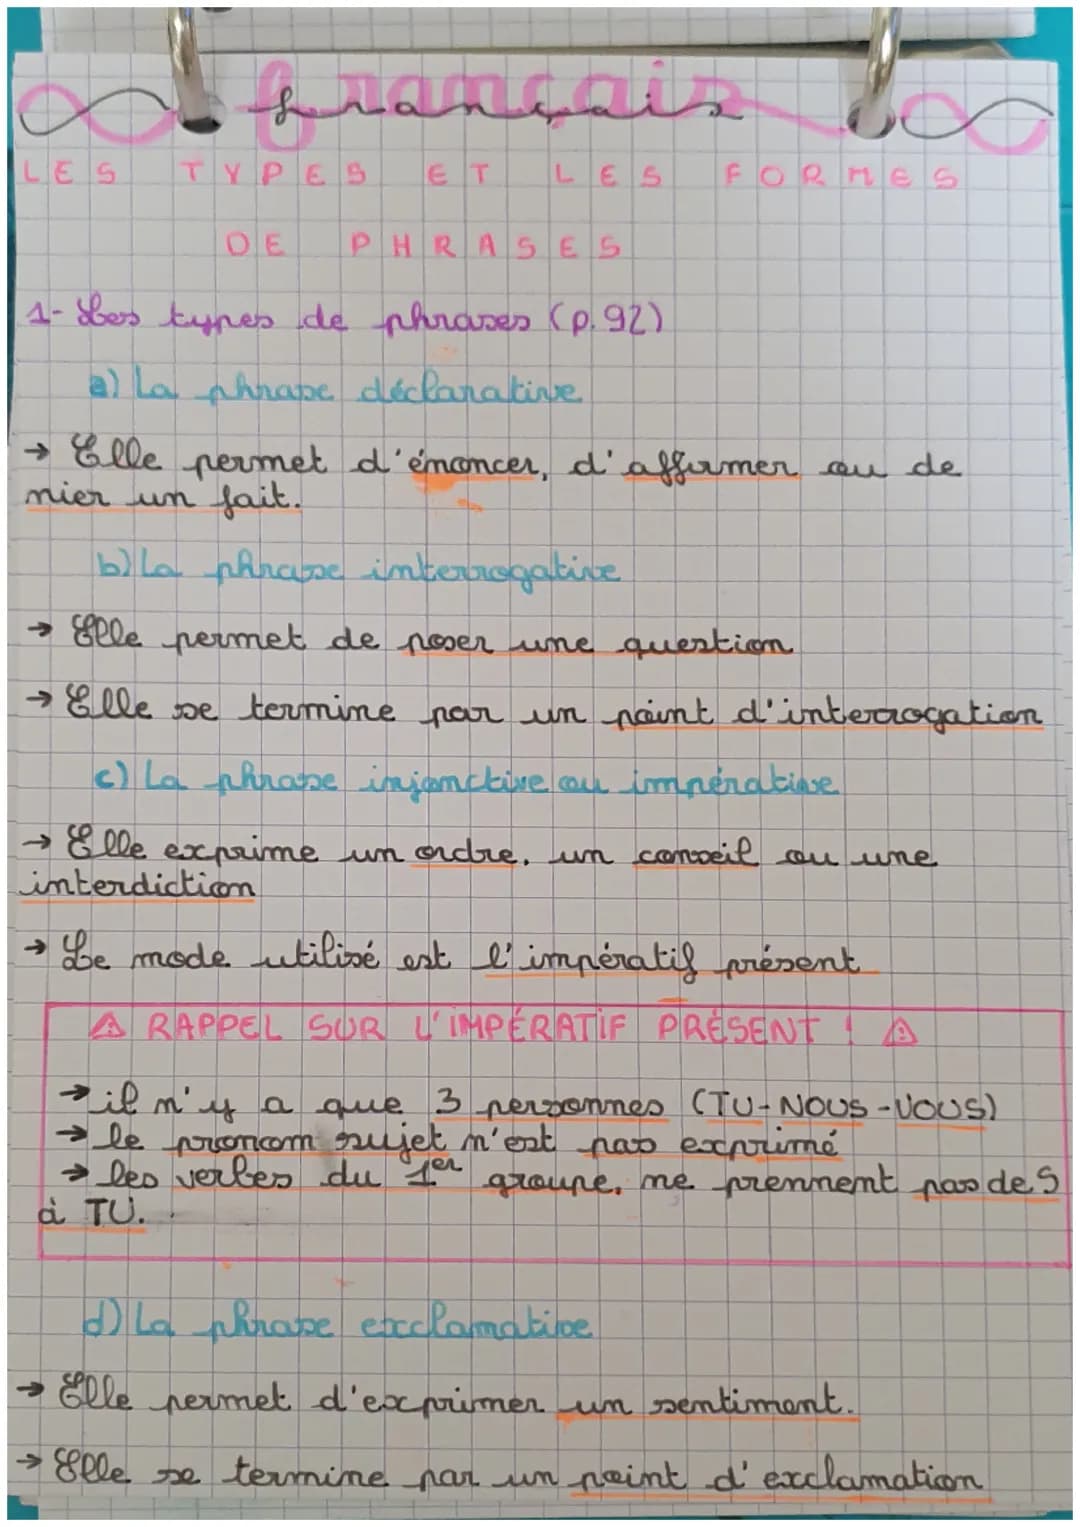 français
LES TYPES ET LES FORMES
DE PHRASES
1- Les types de phrases (p.92)
a) La phrase déclarative
→ Elle permet d'énoncer, d'affirmer ou de
nier un fait.
b) La phrase interrogative
→ Elle permet de poser une question
→ Elle se termine par un point d'interrogation
c) La phrase injonctive ou impérative
→ Elle exprime un ordre, un conseil ou une
interdiction
→ Le mode utilisé est l'impératif présent
⚠ RAPPEL SUR L'IMPÉRATIF PRÉSENT ! ⚠
→ il n'y a que 3 personnes (TU-NOUS-VOUS)
→ le pronom sujet n'est pas exprimé
→ les verbes du 1er groupe, ne prennent pas de S
à TU.
d) La phrase exclamative
→ Elle permet d'exprimer un sentiment.
→ Elle se termine par un point d'exclamation